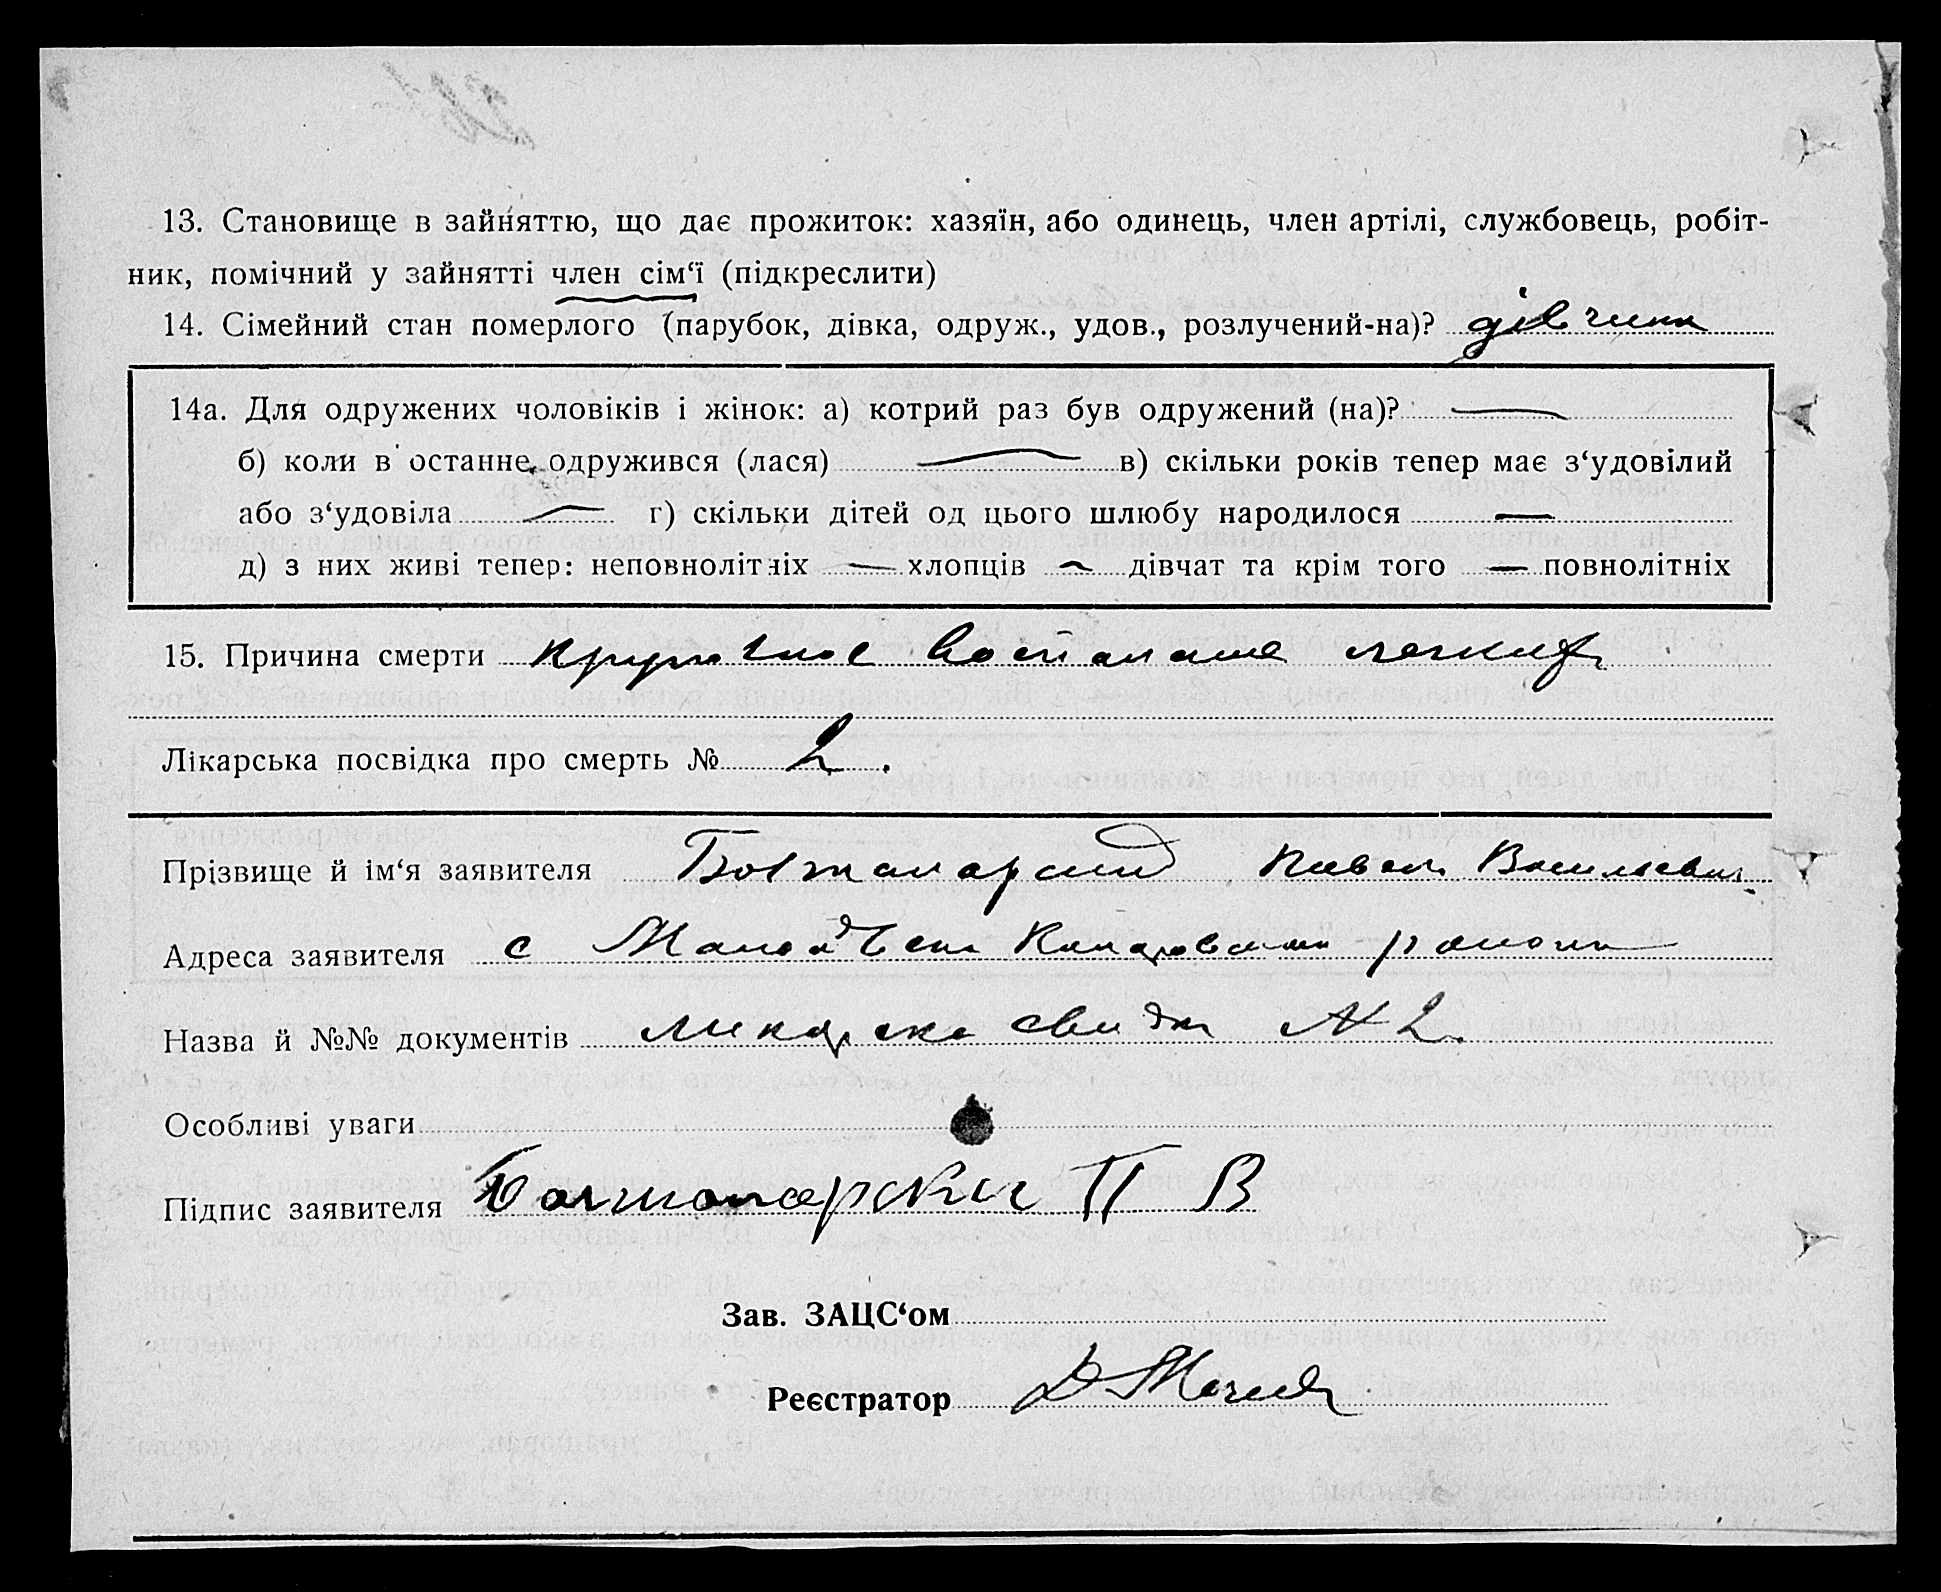 13. Становище в зайняттю, що дає прожиток: хазяїн, або одинець, член артілі, службовець, робіт-
ник, помічний у зайнятті член сім‘ї (підкреслити)
14. Сімейний стан померлого (парубок, дівка, одруж., удов., розлучений-на)? дівчина
14а. Для одружених чоловіків і жінок: а) котрий раз був одружений (на)? —
б) коли в останнє одружився (лася) — в) скільки років тепер має з‘удовілий
або з‘удовіла — г) скільки дітей од цього шлюбу народилося —
д) з них живі тепер: неповнолітніх — хлопців — дівчат та крім того — повнолітніх
15. Причина смерти крупозное воспаление легких
Лікарська посвідка про смерть № 2.
Прізвище й ім‘я заявителя Павел Васильевич
Адреса заявителя с района
Назва й №№ документів ликарска свидка № 2.
Особливі уваги
Підпис заявителя П В
Зав. ЗАЦС‘ом
Реєстратор